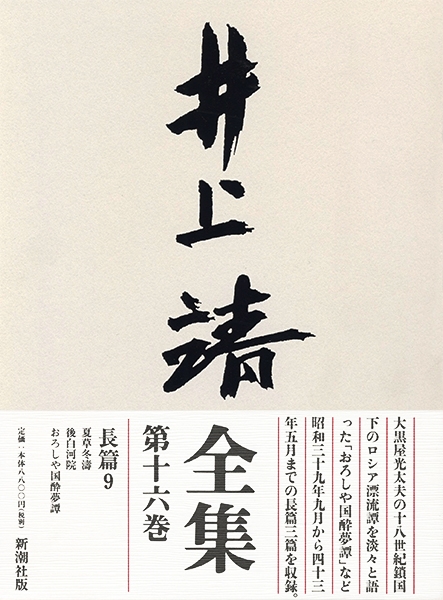 井上靖
大黒屋光太夫の十八世紀鎖国
下のロシア漂流譚を淡々と語
った「おろしや国酔夢譚」など
昭和三十九年九月から四十三
年五月までの長篇三篇を収録。
全集
第十六巻
長篇9
夏草冬濤
後白河院
おろしや国酔夢譚
定価：本体八八〇〇円（税別）
新潮社版